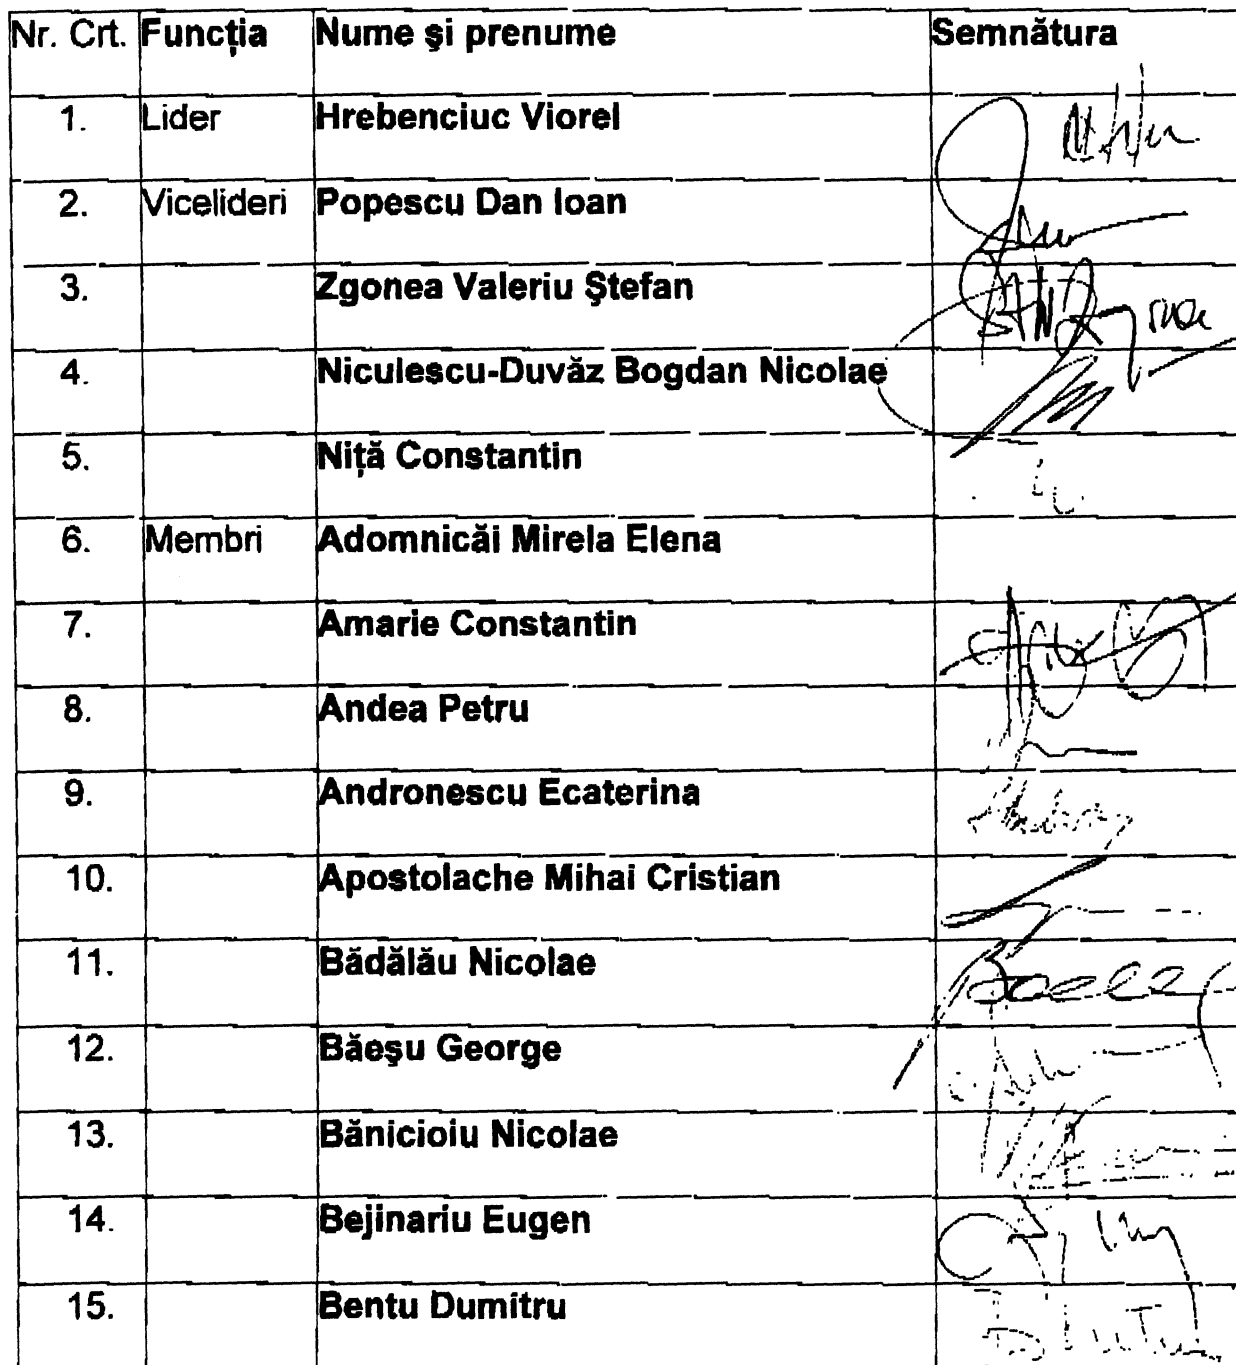 Nr. Crt. Funcția Nume şi prenume Semnătura
1. Lider Hrebenciuc Viorel
2. Vicelideri Popescu Dan Ioan
3. Zgonea Valeriu Ştefan
4. Niculescu-Duvăz Bogdan Nicolae
5. Niță Constantin
6. Membri Adomnicăi Mirela Elena
7. Amarie Constantin
8. Andea Petru
9. Andronescu Ecaterina
10. Apostolache Mihai Cristian
11. Bădălău Nicolae
12. Băeşu George
13. Bănicioiu Nicolae
14. Bejinariu Eugen
15. Bentu Dumitru